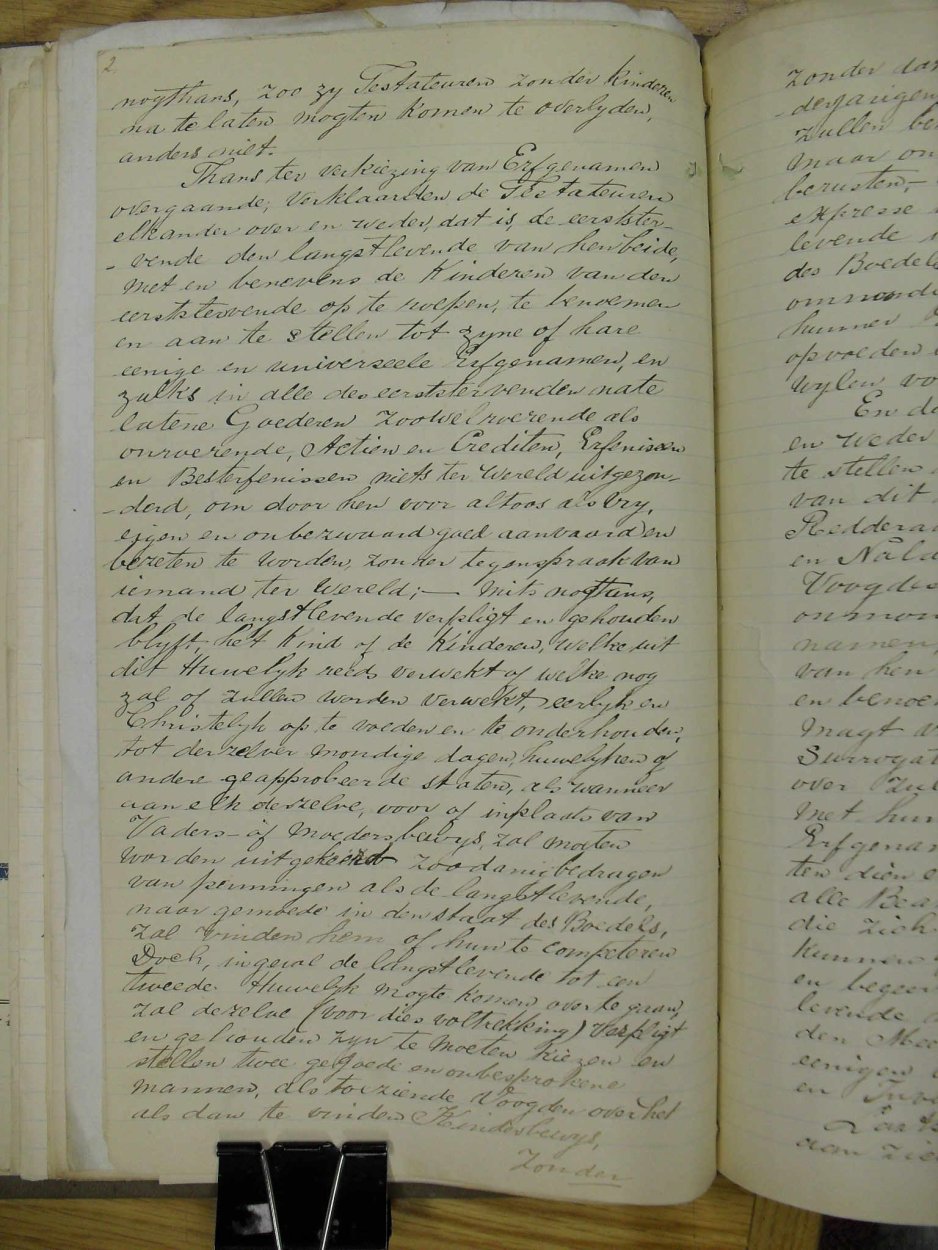 2.
nogthans, zoo zy Testateuren zonder kinderen
na te laten mogten komen te overlyden,
anders niet.
Thans ter verkiezing van Erfgenamen
overgaande; verklaarden de Testateuren
elkander over en weder, dat is, de eerstster-
-vende den langstlevende van hen beide,
met en benevens de Kinderen van den
eerststervende op te roepen, te benoemen
en aan te stellen tot zyne of hare
eenige en universeele Erfgenamen, en
zulks in alle des eerststervenden nate
latene Goederen zoowel roerende als
onroerende, Actien en Crediten, Erfenissen
en Besterfenissen niets ter wereld uitgezon-
-derd, om door hen voor altoos als vry,
eigen en onbezwaard goed aanvaard en
bezeten te worden, zonder tegenspraak van
iemand ter wereld; — Mits nogtans,
dat de langstlevende verpligt en gehouden
blyft, het Kind of de Kinderen, welke uit
dit Huwelyk reeds verwekt of welke nog
zal of zullen worden verwekt, eerlyk en
Christelyk op te voeden en te onderhouden,
tot derzelver mondige dagen, huwelyken of
andere geapprobeerde staten, als wanneer
aan elk derzelve, voor of inplaats van
Vaders- of Moedersbewys, zal moeten
worden uitgekeerd zoodanig bedragen
van penningen als de langstlevende,
naar gemoede in den staat des Boedels,
zal vinden hem of hun te competeren
Doch, ingeval de langstlevende tot een
tweede Huwelyk mogte komen over te gaan,
zal dezelve (voor dies voltrekking) verpligt
en gehouden zyn te moeten kiezen en
stellen twee gegoede en onbesprokene
mannen, als toeziende Voogden over het
als dan te vinden Kindesbewys,
Zonder
zonder dat
-derjarigen
zullen be
maar on
berusten,-
expresse
levende
des Boedels
om
hunner
opvoeden
wylen vo
En de
en weder
te stellen
van dit
Redderaa
en Nala
Voogdes
onmon
namen
van hen
en benoe
Magt v
Surrogat
over zul
met hun
Erfgenam
ten dien e
alle Bea
die zich
kunnen
en begeer
levende
den Mee
eenigen
en Inve
Laats
aan zie